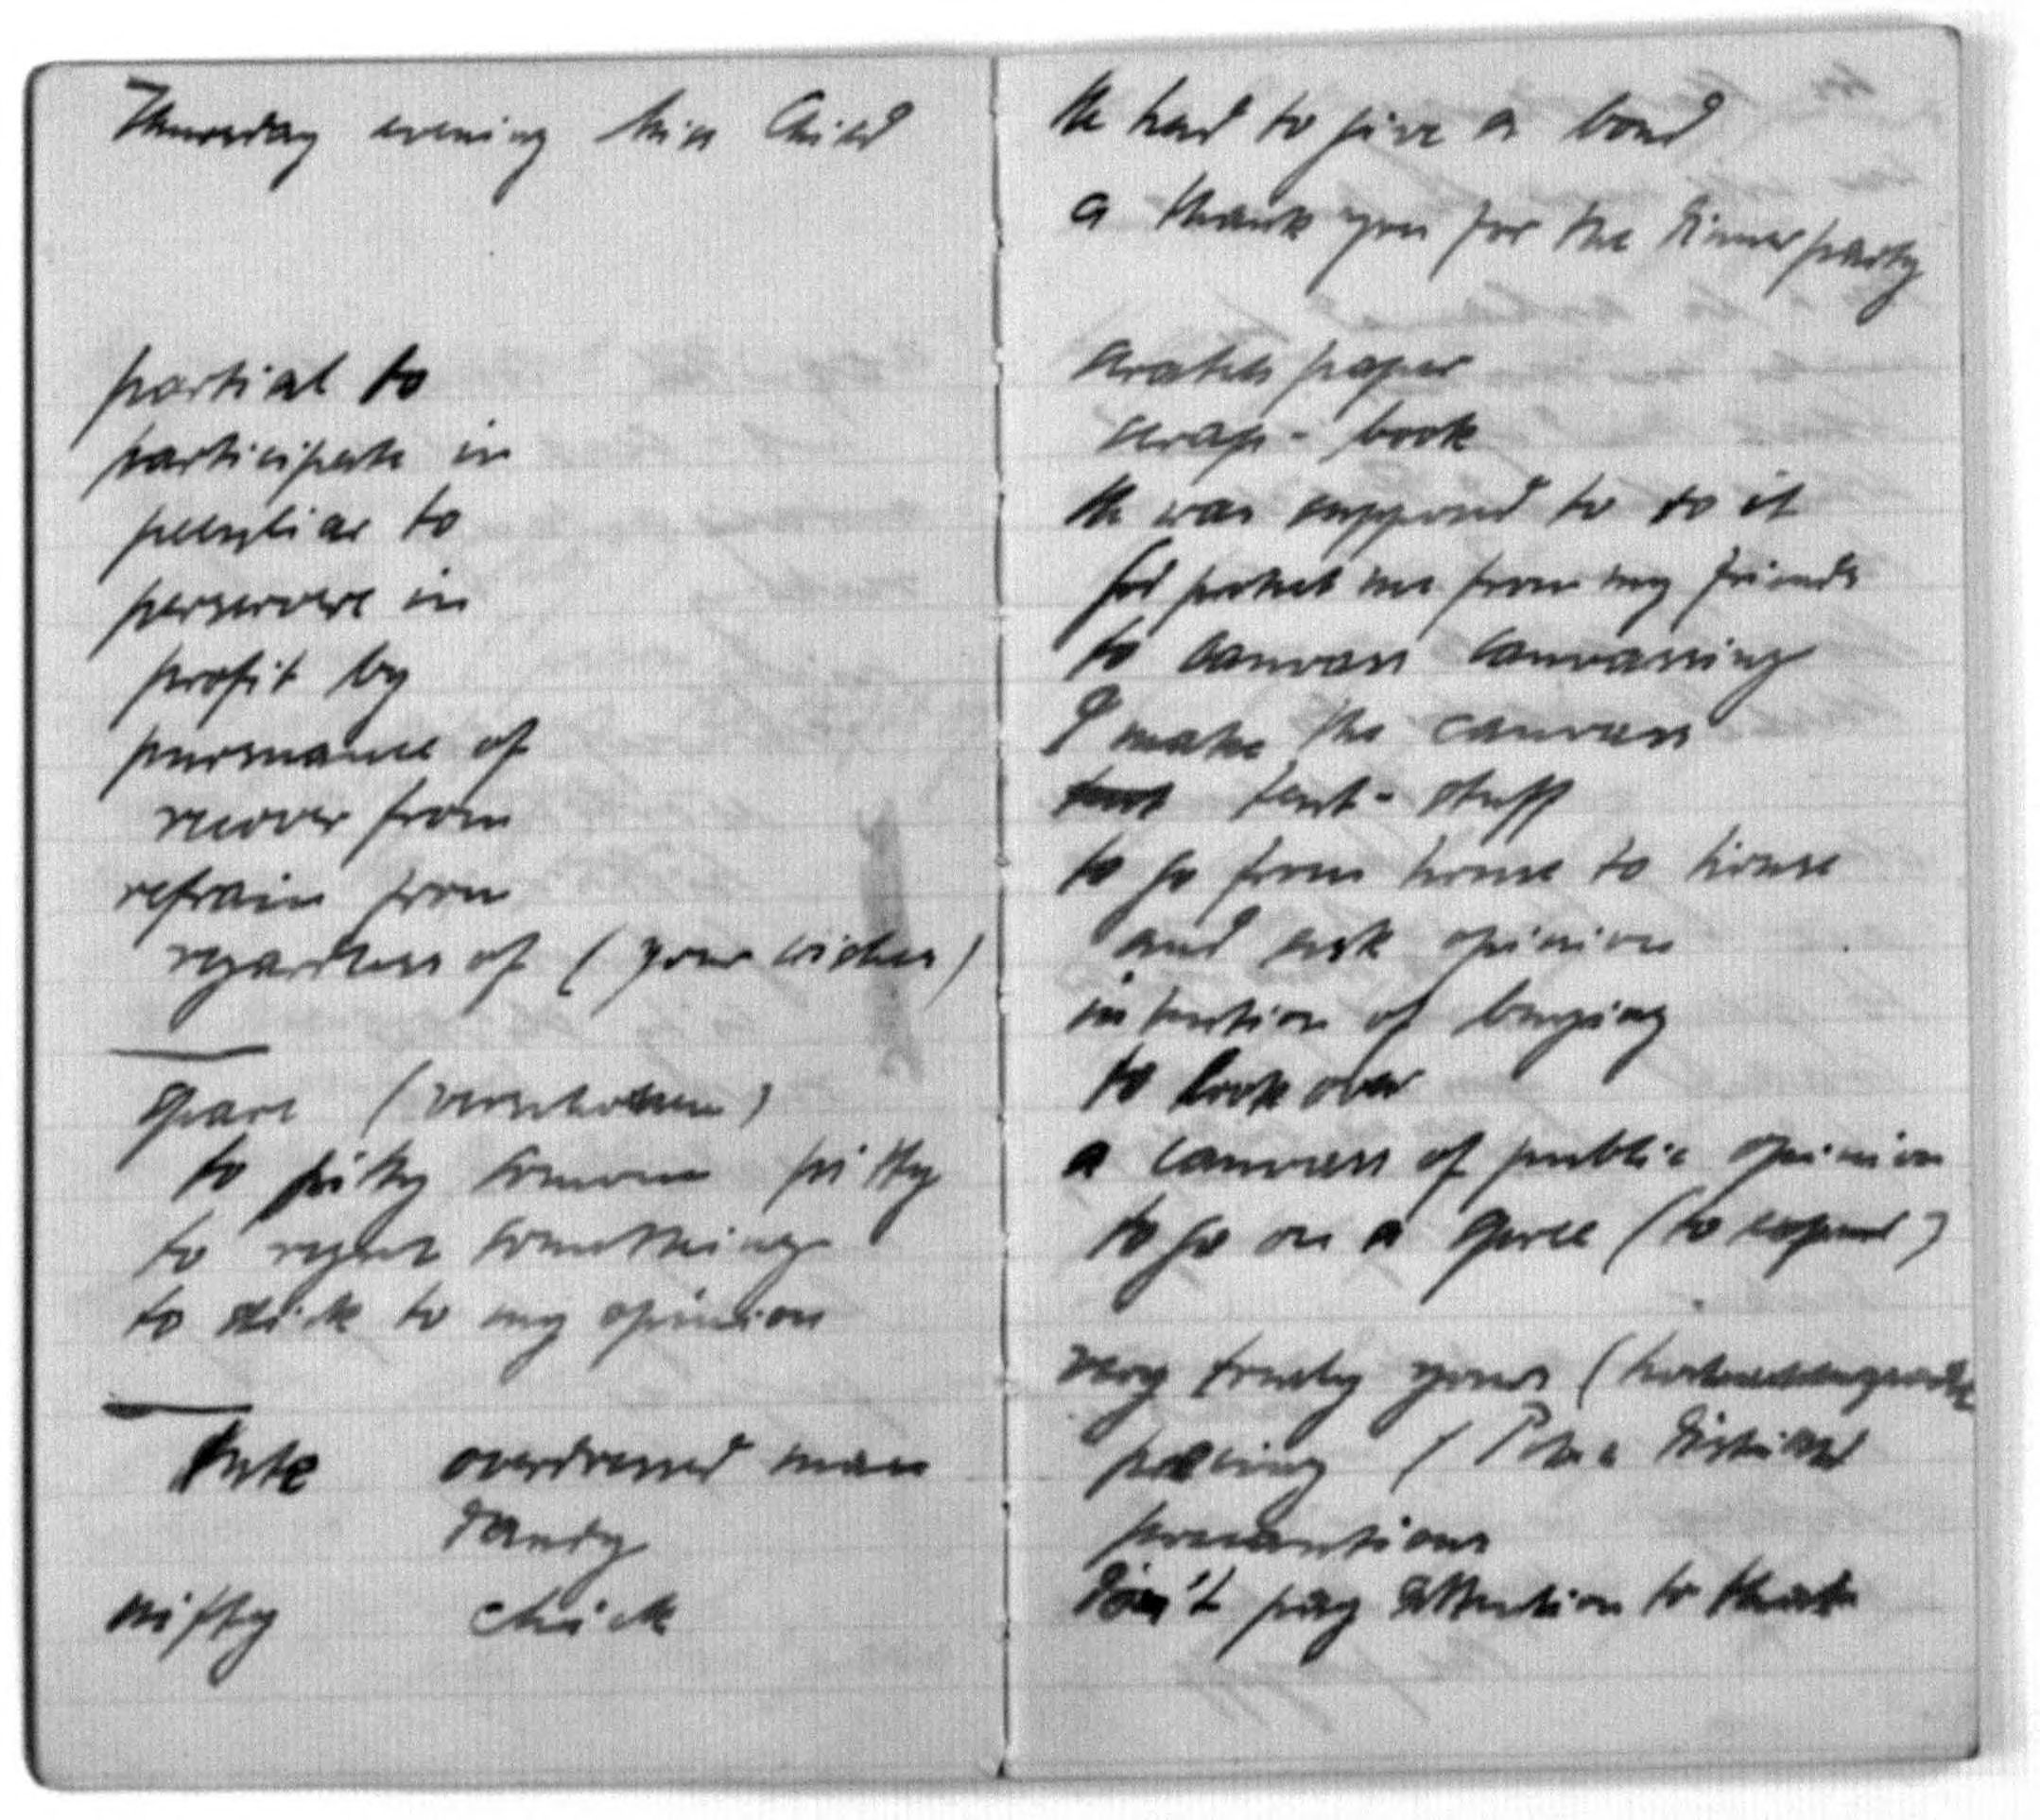 Thursday evening Miss Child
partial to
participate in
peculiar to
perservere in
profit by
pursuance of
recover from
refrain from
regardless of (your wishes)
spare (verschonen)
to pitty someone pitty
to regret something
to stick to my opinion
overdressed man
dandy
nifty chick
He had to give a bond
a thank you for the dinner party
scratch paper
scrap-book
He was supposed to do it
God protect me from my friends
to canvass canvassing
I make the canvass
tent-stuff
to go from house to house
and ask opinion
intention of buying
to look over
a canvass of public opinion
to go on a spree (to expend)
very truely yours
precautions
Don't pay attention to that